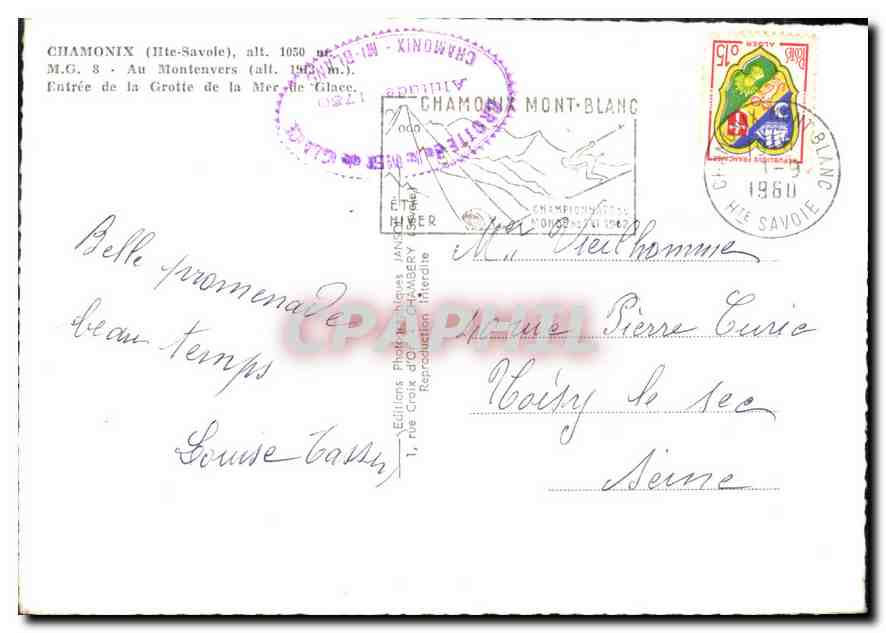 CHAMONIX (Hte-Savoie), alt. 1050 m.
M.G. 8 - Au Montenvers (alt. 1913 m.).
Entrée de la Grotte de la Mer de Glace.
GROTTE de la MER de GLACE
CHAMONIX - Mt-BLANC
Altitude 1750
CHAMONIX MONT-BLANC
ÉTÉ
HIVER
CHAMPIONNATS DU
MONDE DE SKI 1962
0,15 POSTES
ALGER
REPUBLIQUE FRANÇAISE
MONT-BLANC
1-9
1960
Hte SAVOIE
Belle promenade
beau temps
Louise
Editions Photographiques JANSOL
1, rue Croix d'Or - CHAMBERY (Savoie)
Reproduction Interdite
Vieilhomme
rue Pierre Curie
Noisy le sec
Seine
CPAPHIL